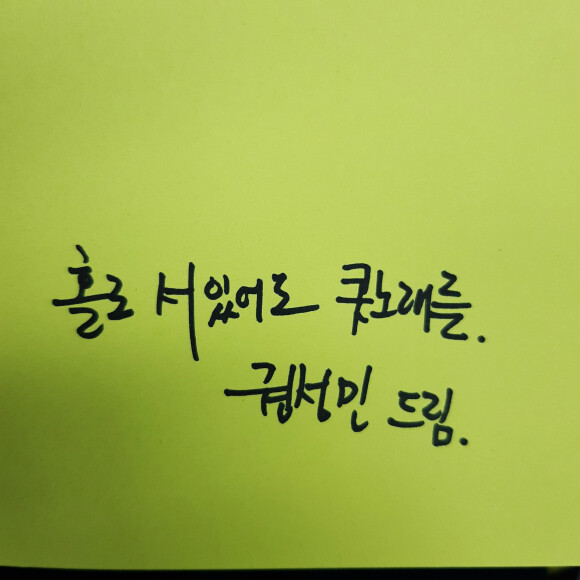 홀로 서있어도 콧노래를.
권성민 드림.